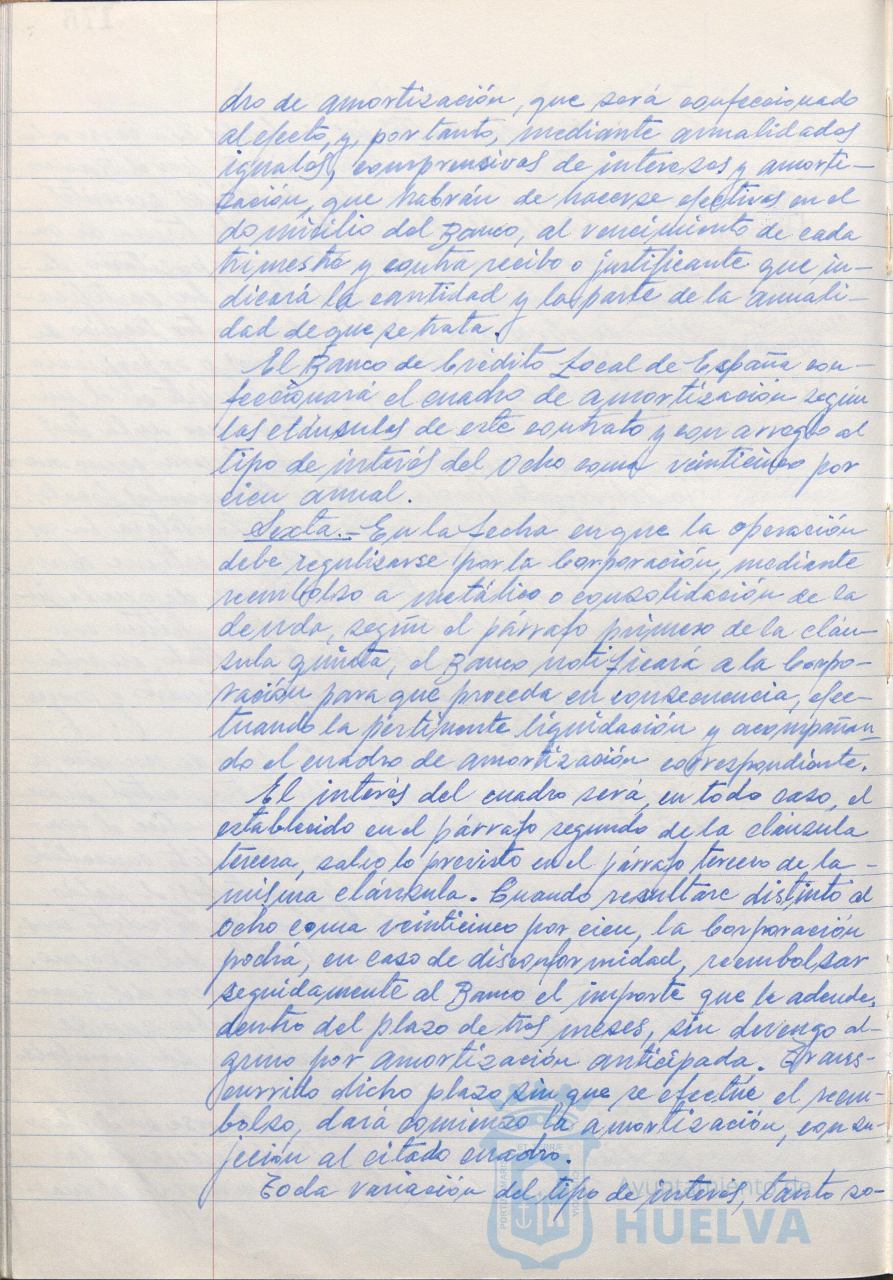 dro de amortización, que será confeccionado
al efecto, y, por tanto, mediante anualidades
iguales, comprensivas de intereses y amorti-
zación, que habrán de hacerse efectivas en el
domicilio del Banco, al vencimiento de cada
trimestre y contra recibo o justificante que in-
dicará la cantidad y la parte de la anuali-
dad de que se trata.
El Banco de Crédito Local de España con-
feccionará el cuadro de amortización según
las cláusulas de este contrato y con arreglo al
tipo de interés del Ocho coma veinticinco por
cien anual.
Sexta.- En la fecha en que la operación
debe regulizarse por la Corporación, mediante
reembolso a metálico o consolidación de la
deuda, según el párrafo primero de la cláu-
sula quinta, el Banco notificará a la Corpo-
ración para que proceda en consecuencia, efec-
tuando la pertinente liquidación y acompañan-
do el cuadro de amortización correspondiente.
El interés del cuadro será, en todo caso, el
establecido en el párrafo segundo de la cláusula
tercera, salvo lo previsto en el párrafo tercero de la -
misma cláusula. Cuando resultare distinto al
Ocho coma veinticinco por cien, la Corporación
podrá, en caso de disconformidad, reembolsar
seguidamente al Banco el importe que le adeude,
dentro del plazo de tres meses, sin devengo al-
guno por amortización anticipada. Trans-
currido dicho plazo sin que se efectúe el reem-
bolso, dará comienzo la amortización, con su-
jeción al citado cuadro.
Toda variación del tipo de interés, tanto so-
Ayuntamiento de
HUELVA